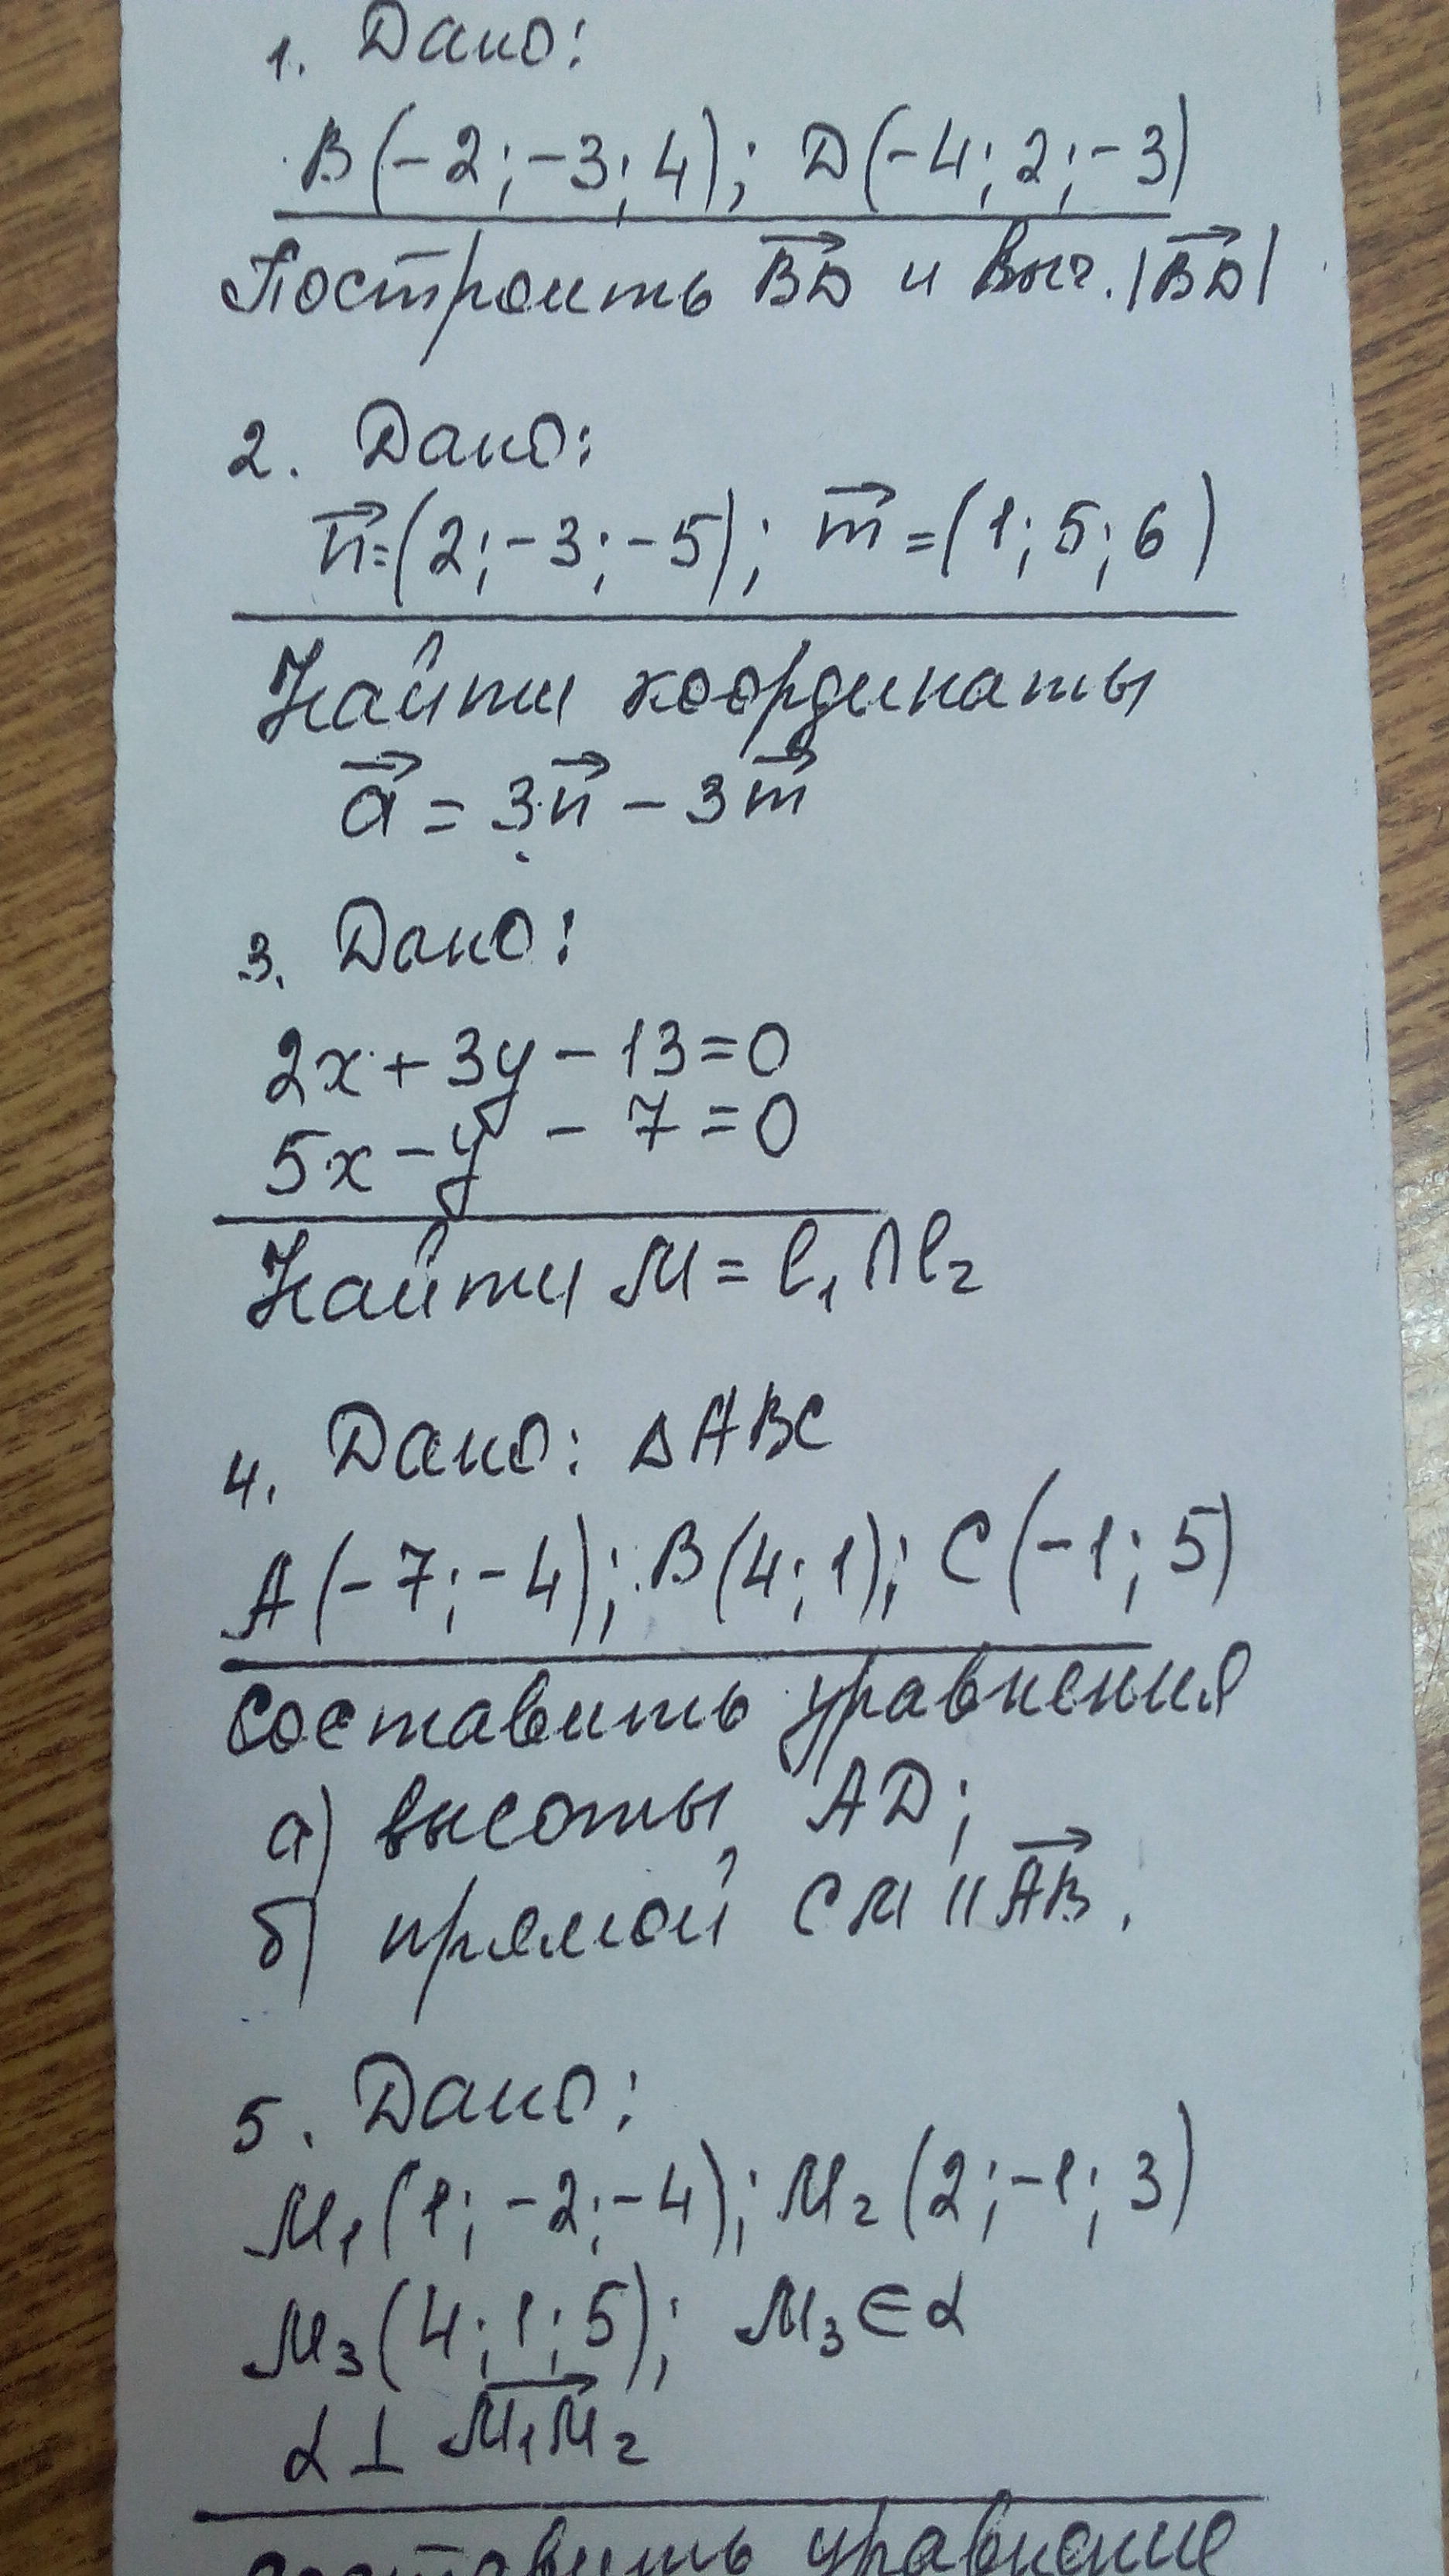 1. Дано:
B(-2;-3;4); D(-4;2;-3)
Построить BD и выч. |BD|
2. Дано:
n=(2;-3;-5); m=(1;5;6)
Найти координаты
a = 3·n - 3m
3. Дано:
2x + 3y - 13=0
5x - y - 7=0
Найти M = l₁∩l₂
4. Дано: △ABC
A(-7;-4); B(4;1); C(-1;5)
Составить уравнения
а) высоты AD;
б) прямой CM || AB.
5. Дано:
M₁(1;-2;-4); M₂(2;-1;3)
M₃(4;1;5); M₃∈α
α⊥ M₁M₂
составить уравнение